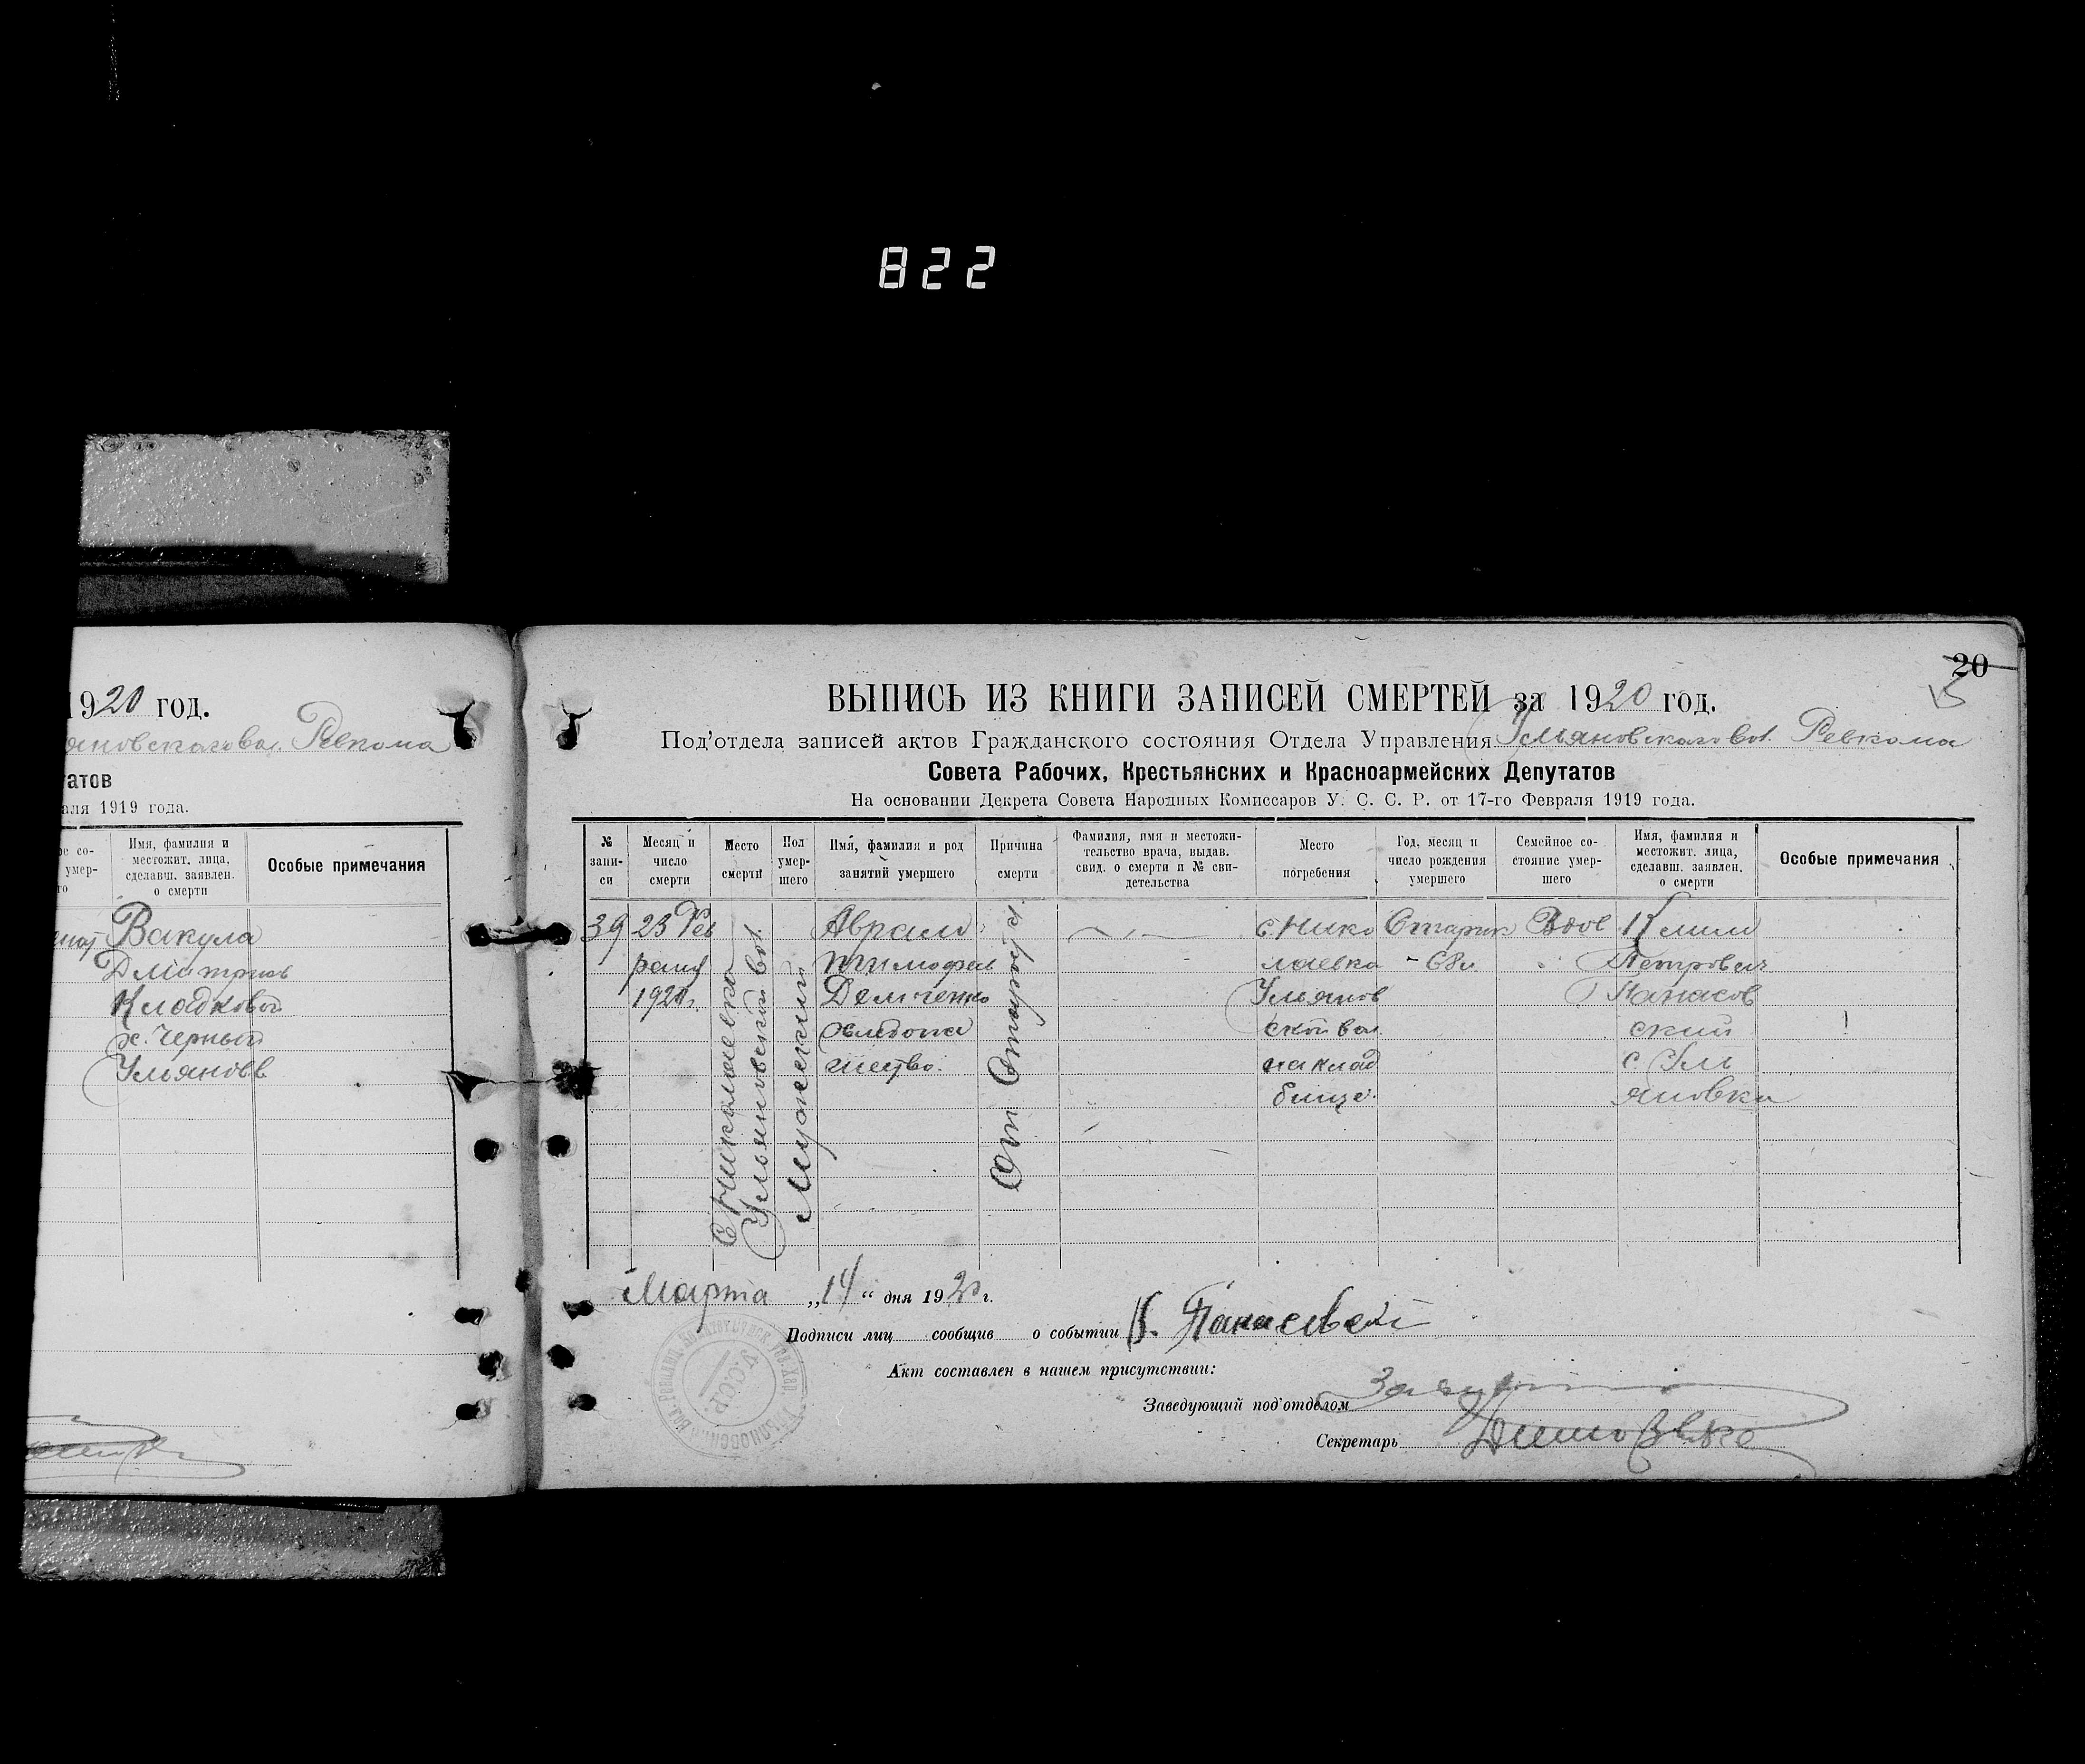 822
1920 год.
Ревкома
татов
аля 1919 года.
Имя, фамилия и
местожит. лица,
сделавш. заявлен.
о смерти
Особые примечания
Вакула
Дмитриев
Кладковой
х. Черный
Ульянов в
20
ВЫПИСЬ ИЗ КНИГИ ЗАПИСЕЙ СМЕРТЕЙ за 1920 год.
Под'отдела записей актов Гражданского состояния Отдела Управления Ульяновского вол. Ревкома
Совета Рабочих, Крестьянских и Красноармейских Депутатов
На основании Декрета Совета Народных Комиссаров У. С. С. Р. от 17-го Февраля 1919 года.
№
запи-
си
Месяц и
число
смерти
Место
смерти
Пол
умер-
шего
Имя, фамилия и род
занятий умершего
Причина
смерти
Фамилия, имя и местожи-
тельство врача, выдав.
свид. о смерти и № сви-
детельства
Место
погребения
Год, месяц и
число рождения
умершего
Семейное со-
стояние умер-
шего
Имя, фамилия и
местожит. лица,
сделавш. заявлен.
о смерти
Особые примечания
39
23 Фев
раля
1920 г.
с. Николаевка
Ульяновской вол.
Мужеский
Аврам
Тимофеев
Демченко
хлебопа
шество.
От Старости
с. Нико
лаевка
Ульянов
ской вол.
на клад
бище.
Старик
- 68 л.
Вдов
Клим
Петрович
Панасов
ский
с. Уль
яновка
Марта „14“ дня 1920 г.
Подписи лиц сообщив о событии К. Панасовский
Акт составлен в нашем присутствии:
Заведующий под'отделом
Секретарь